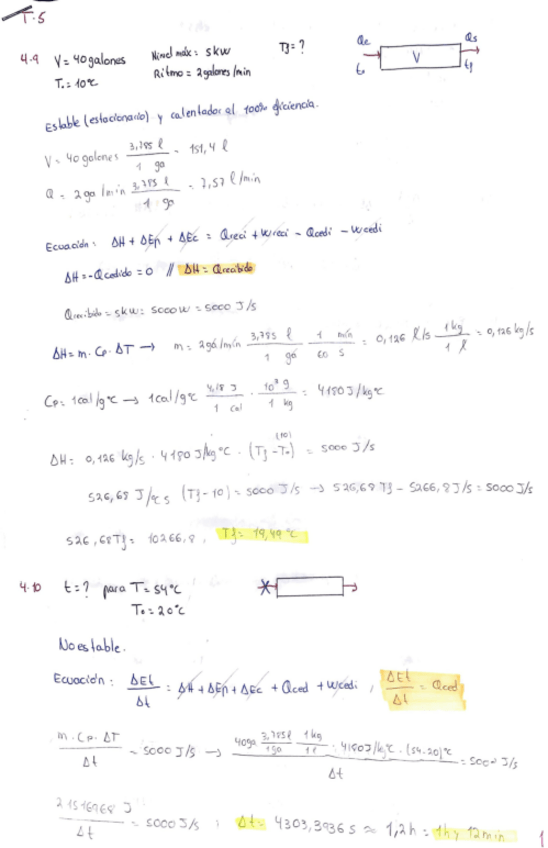 T.5
4.9 V= 40 galones Nivel máx: 5kW Tf= ?
T₀= 10ºC Ritmo = 2 galones/min
Qe Qs
V
t₀ tf
Estable (estacionario) y calentador al 100% eficiencia.
V= 40 galones 3,785 l / 1 ga = 151,4 l
Q = 2 ga/min 3,785 l / 1 ga = 7,57 l/min
Ecuación: ΔH + ΔEp + ΔEc = Qreci + Wreci - Qcedi - Wcedi
ΔH = -Qcedido = 0 // ΔH = Qrecibido
Qrecibido = 5kW = 5000W = 5000 J/s
ΔH = m · Cp · ΔT → m = 2ga/min 3,785 l / 1 ga · 1 min / 60 s = 0,126 l/s 1kg / 1 l = 0,126 kg/s
Cp = 1cal/gºC → 1cal/gºC 4,18 J / 1 cal · 10³ g / 1 kg = 4180 J/kgºC
ΔH = 0,126 kg/s · 4180 J/kgºC · (Tf - T₀) = 5000 J/s
(10)
526,68 J/ºC s (Tf - 10) = 5000 J/s → 526,68 Tf - 5266,8 J/s = 5000 J/s
526,68 Tf = 10266,8 , Tf = 19,49ºC
4.10 t = ? para T = 54ºC
T₀ = 20ºC
No estable.
Ecuación: ΔEt / Δt = ΔH + ΔEp + ΔEc + Qced + Wcedi , ΔEt / Δt = Qced
m · Cp · ΔT / Δt = 5000 J/s → 40ga 3,785l / 1ga 1kg / 1l · 4180J/kgºC · (54-20)ºC / Δt = 5000 J/s
21516968 J / Δt = 5000 J/s ; Δt = 4303,3936 s ≈ 1,2h = 1h y 12 min
1